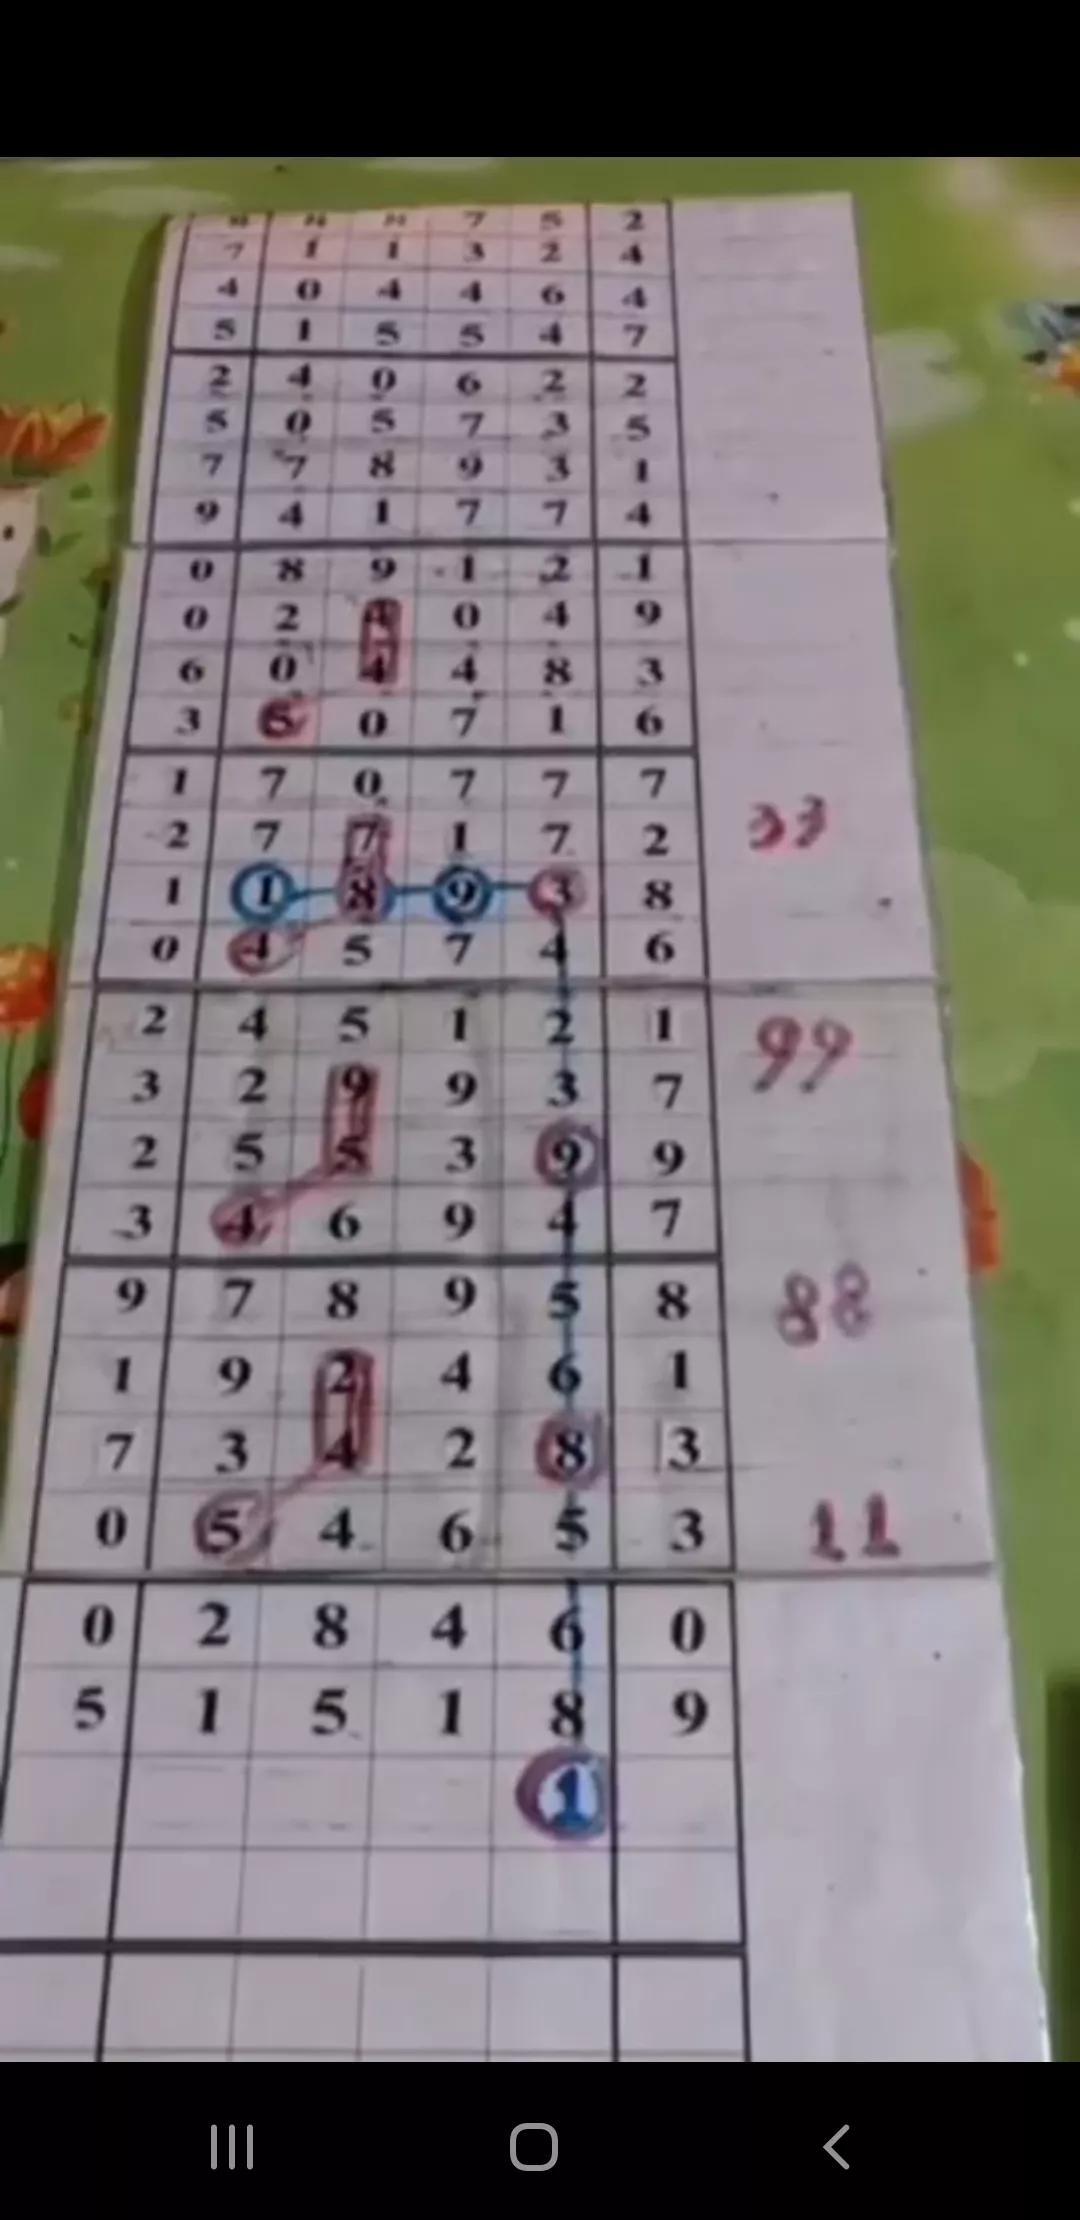 7 5 2
7 1 1 3 2 4
4 0 4 4 6 4
5 1 5 5 4 7
2 4 0 6 2 2
5 0 5 7 3 5
7 7 8 9 3 1
9 4 1 7 7 4
0 8 9 1 2 1
0 2 4 0 4 9
6 0 4 4 8 3
3 5 0 7 1 6
1 7 0 7 7 7
2 7 7 1 7 2
33
1 1 8 9 3 8
0 4 5 7 4 6
2 4 5 1 2 1
99
3 2 9 9 3 7
2 5 5 3 9 9
3 4 6 9 4 7
9 7 8 9 5 8
88
1 9 2 4 6 1
7 3 4 2 8 3
0 5 4 6 5 3
11
0 2 8 4 6 0
5 1 5 1 8 9
1